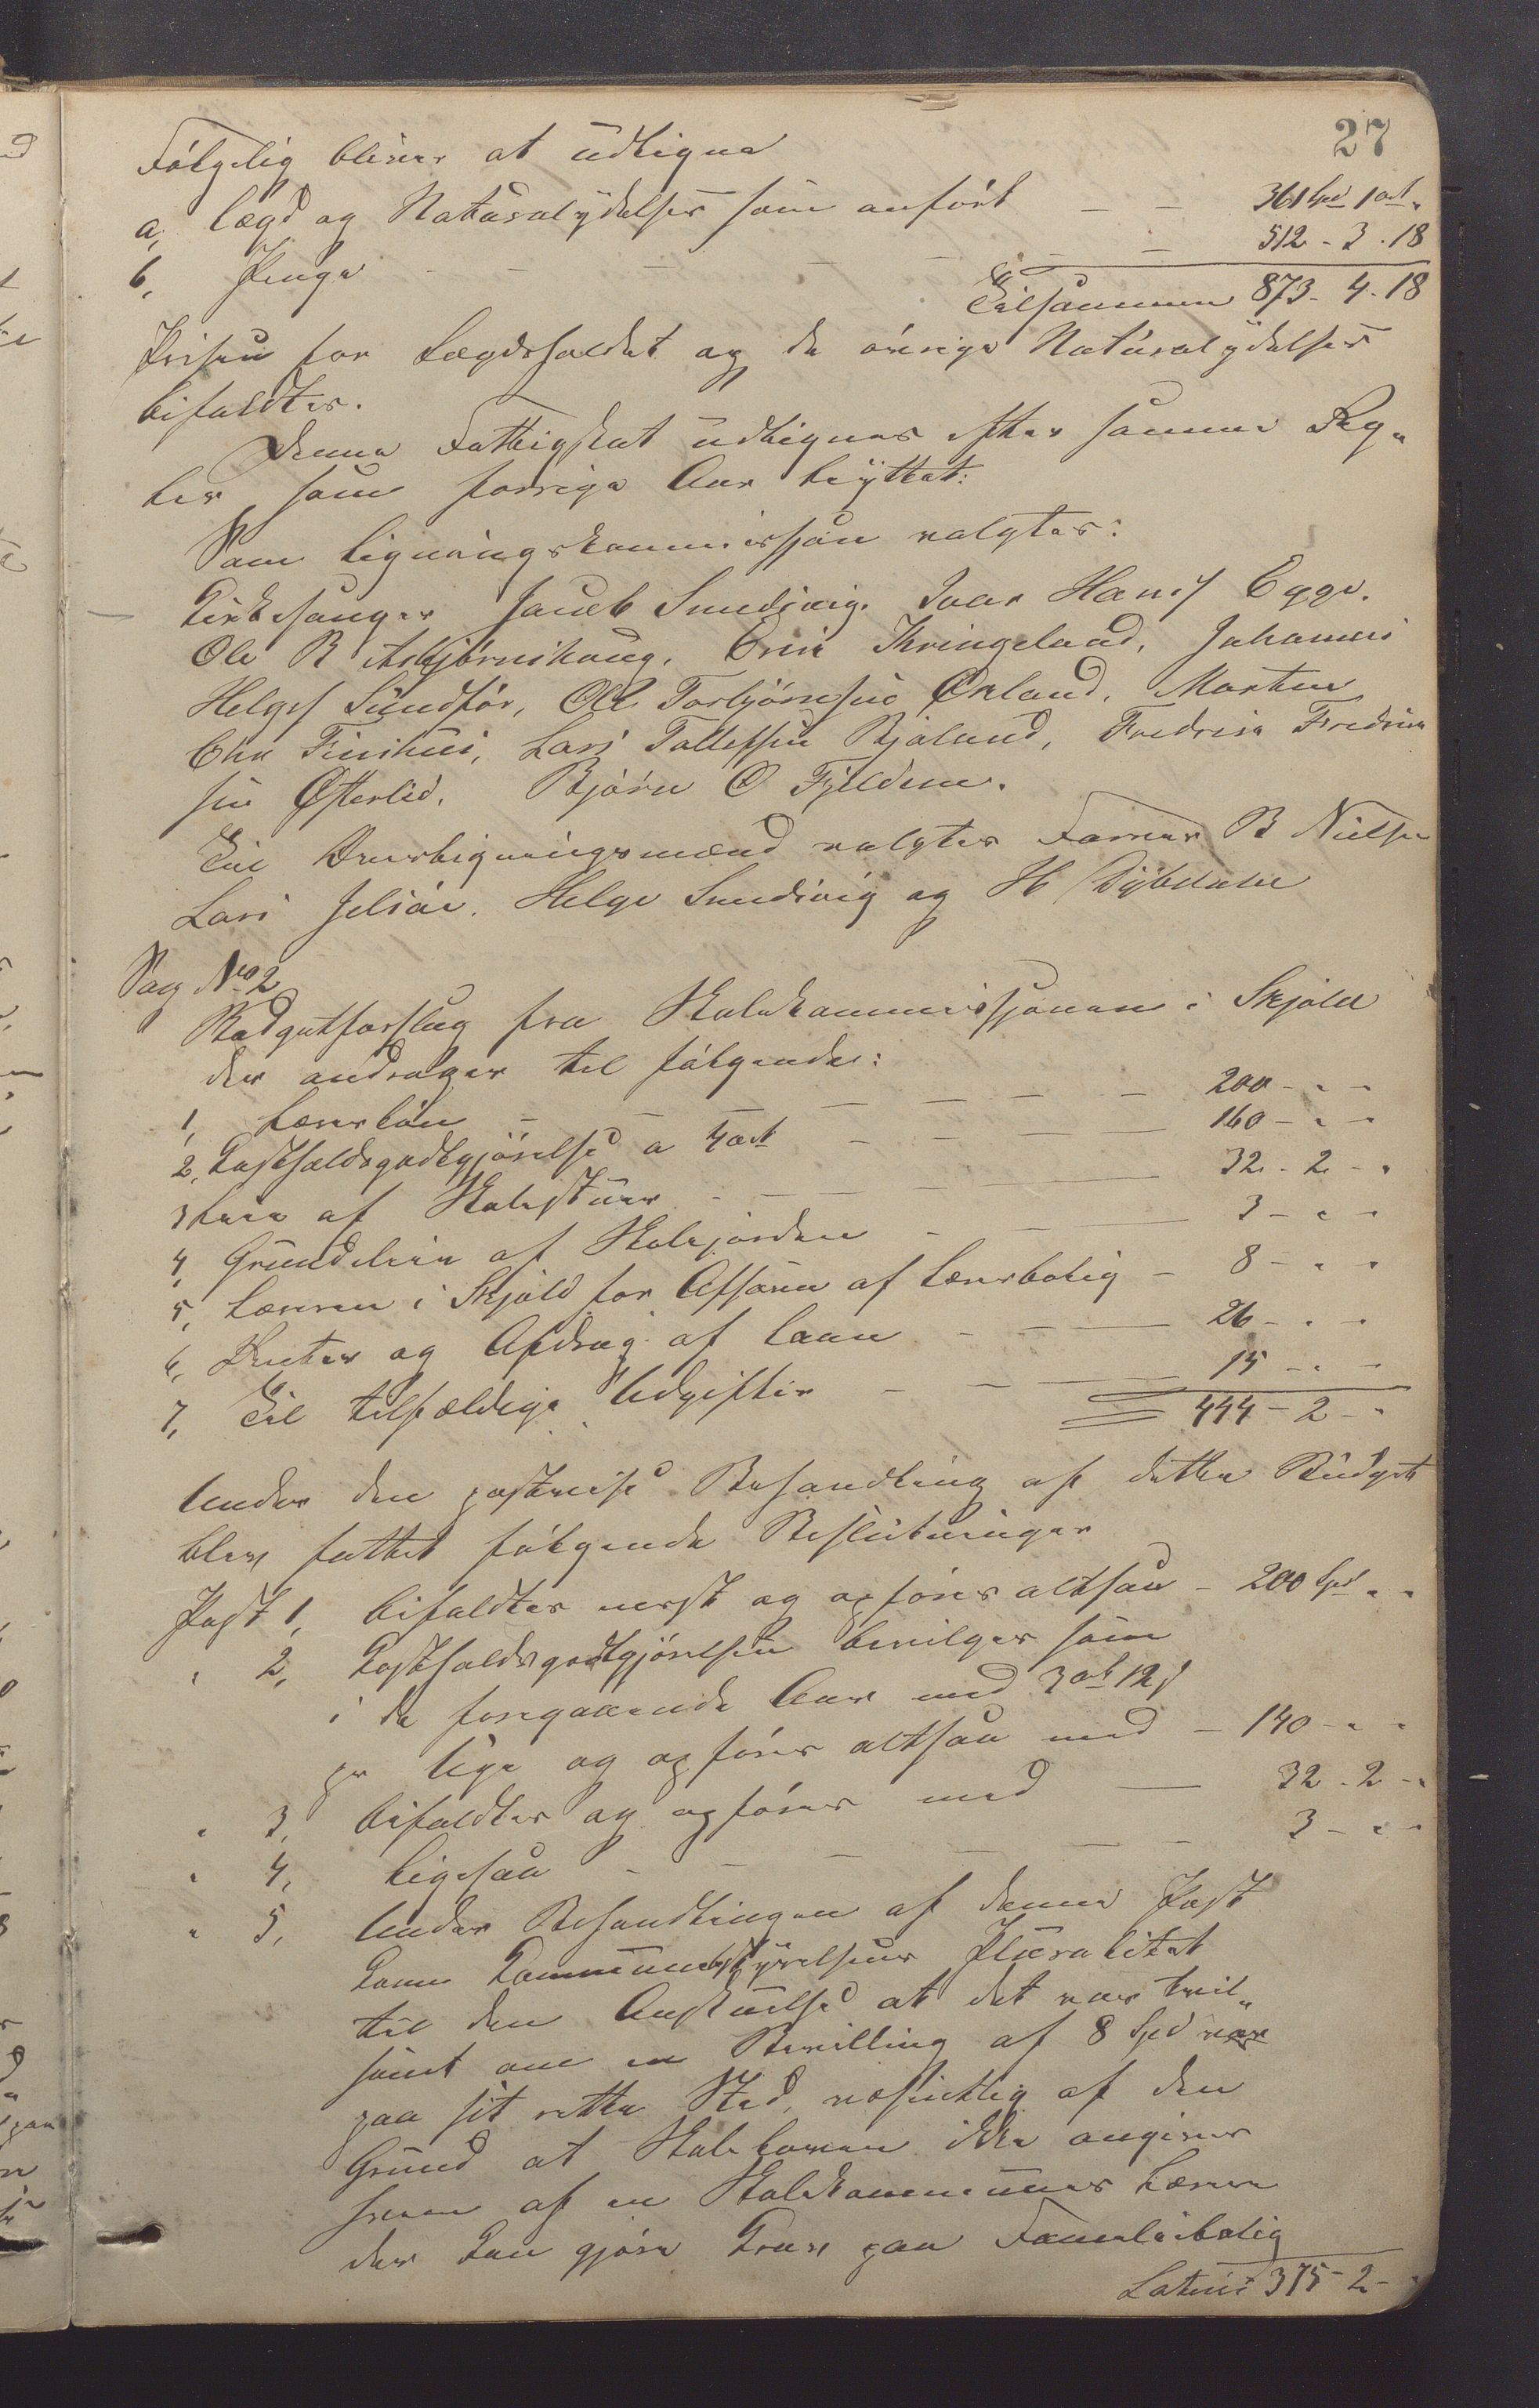 27
Følgelig bliver at udligne
a, Lægd og Naturalydelser som anført — — 361 Spd 1 ort "
b, Penge — — — — — 512 - 3 - 18
Tilsammen 873 - 4 - 18
Prisen for Lægdsholdet og de øvrige Naturalydelser
bifaldtes.
Denne Fattigskat udlignes efter samme Reg-
ler som forrige Aar benyttet:
Som Ligningskommission valgtes:
Kirkesanger Jacob Smedsvig. Ivar Hans Egge.
Ole B Asbjørnshaug. Erik Kringeland, Johannes
Helges Sundfør, Ole Torbjørnsen Økland, Morten
Chr Finshus, Lars Tollefsen Bjoland, Fredrik Fredrik
sen Østerlid. Bjørn O Fjeldene.
Til Overligningsmænd valgtes Farver B Nielsen
Lars Jelsøe. Helge Smedsvig og H Dybdahl
Sag No 2
Budgetforslag fra Skolekommissjonen i Skjold
der andrager til følgende:
1, Lærerløn — — — — — 200 - " -
2, Kostholdsgodtgjørelse a 4 ort — — — 160 - " -
3 Leie af Skolestuer — — — 32 - 2 - "
4, Grundleie af Skolejorden — — 3 - " -
5, Læreren i Skjold for Afsavn af Lærerbolig — 8 - " "
6, Renter og Afdrag af Laan — — — 26 - " -
7, Til tilfældige Udgifter — — — 15 - " -
444 - 2 - "
Under den postvise Behandling af dette Budget
blev fattet følgende Beslutninger
Post 1, bifaldtes verst og opføres altsaa — 200 Spd " "
" 2, Kostholdsgodtgjørelsen bevilges som
i de foregaaende Aar med 3 ort 12 s
pr Uge og opføres altsaa med — 140 - " -
" 3, bifaldtes og opføres med — 32 - 2 - "
" 4, ligesaa — — — — 3 - " -
" 5, Under Behandlingen af denne Post
kom Kommunebestyrelsens Pluralitet
til den Anskuelse at det var tvil-
somt om en Bevilling af 8 Spd var
paa sit rette Sted, væsentlig af den
Grund at Skoleloven ikke angiver
hvem af en Skolekommunes Lærere
der kan gjøre Krav paa Familiebolig
Lateris 375 - 2 - "